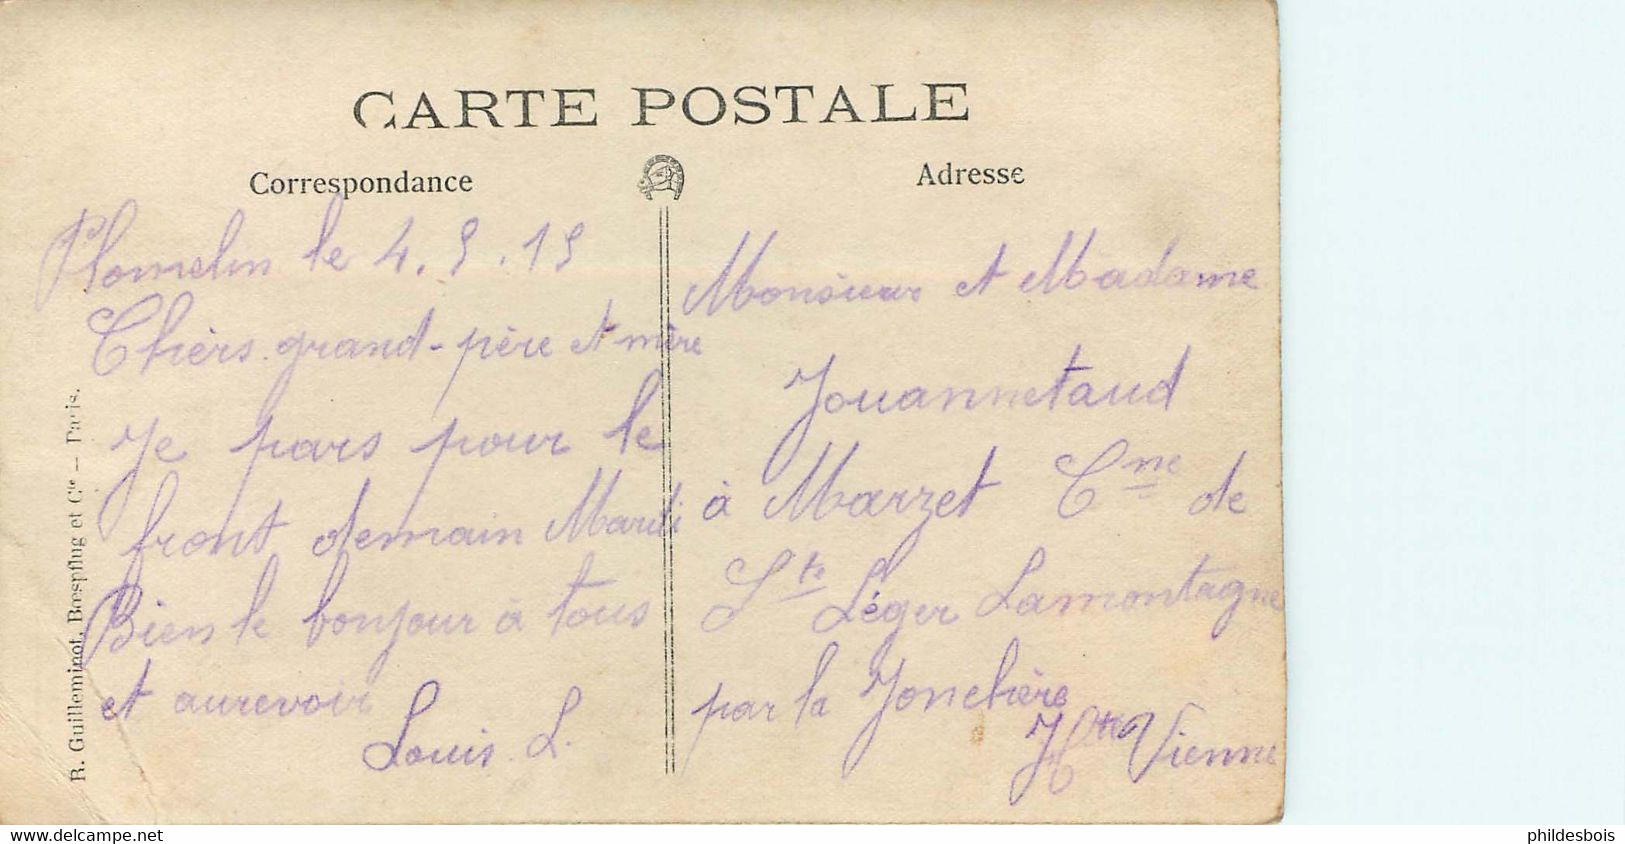 CARTE POSTALE
Correspondance
Plomelin le 4.5.15
Chèrs grand-père et mère
Je pars pour le
front demain Mardi
Bien le bonjour à tous
et aurevoir
Louis. L.
Adresse
Monsieur et Madame
Jouannetaud
à Marzet Cne de
St Léger Lamontagne
par la Jonchère
Hte Vienne
R. Guilleminot, Bœspflug et Cie — Paris.
www.delcampe.net
phildesbois